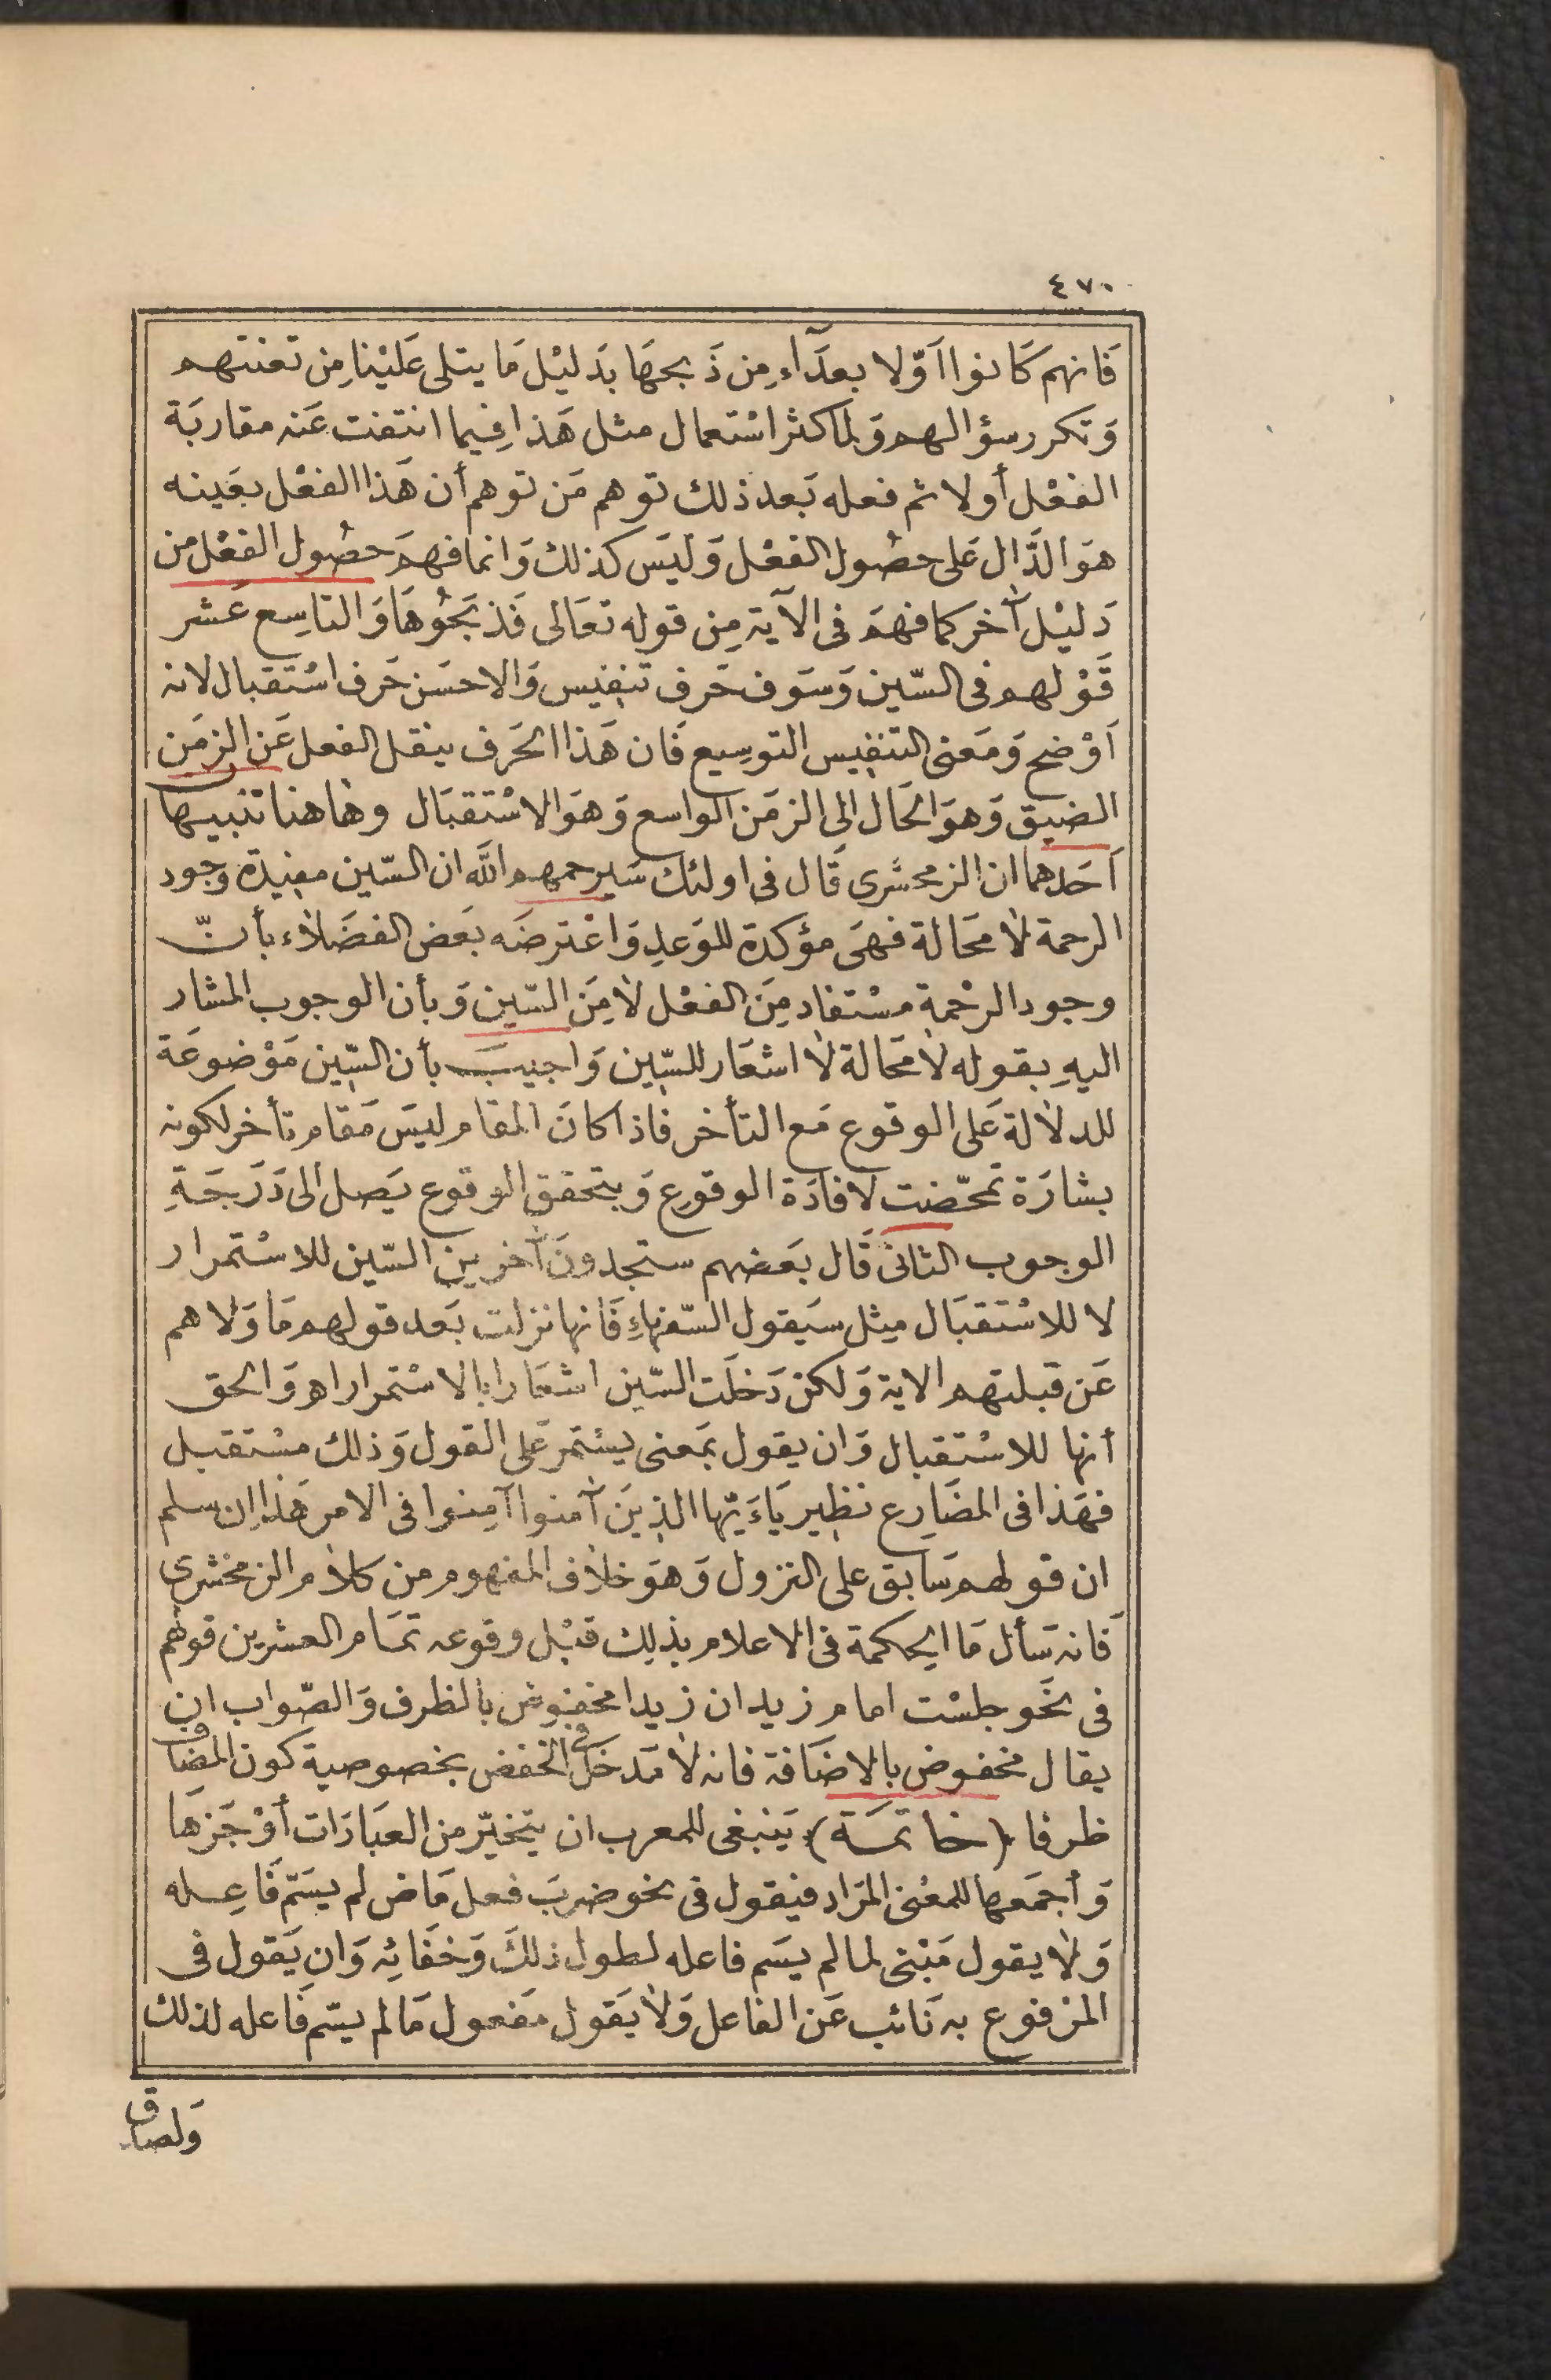 ٤٧٠
فَانهم كَانوا اَوّلا بعدَآء مِن ذَبحهَا بدَليْل مَا يتلى عَليْنا مِن تعنتهم
وَتكرر سؤالهم وَلما كثر اسْتعمال مثل هَذا فِيما انتفت عَنه مقاربَة
الفعْل أولا ثم فعله بَعد ذلك توهم مَن توهم أن هَذا الفعْل بعَينه
هوَ الدَّال عَلى حصُول الفعْل وَليَس كذلك وَانما فهمَ حصُول الفعْل من
دَليْل آخر كما فهمَ فى الآية مِن قوله تعَالى فَذبَحُوهَا وَالتاسِع عَشر
قَوْلهم فى السّين وَسَوف حَرف تنفيس وَالاحسَن حَرف اسْتقبال لانه
اَوْضح وَمَعنى التنفيس التوسِيع فَان هَذا الحَرف ينقل الفعل عَن الزمَن
الضيق وَهوَ الحَال الى الزمَن الواسع وَهوَ الاسْتقبَال وهاهنا تنبيها
اَحَدهما ان الزمخشرى قَال فى اولئك سَيرحمهم الله ان السّين مفيدَة وجود
الرحمة لا محَالة فهىَ مؤكدة للوَعدِ وَاعْترضَه بَعض الفضَلاء بأنّ
وجود الرحْمة مسْتفاد مِنَ الفعْل لا مِنَ السّين وَبأن الوجوب المشار
اليهِ بقوله لا محَالة لا اشعَار للسّين وَاجيبَ بأن السّين مَوْضوعَة
للدلالة عَلى الوقوع مَع التأخر فاذا كانَ المقام ليَس مَقام تأخر لكونه
بشارَة تمحّضت لافادَة الوقوع وَبتحقق الوقوع يَصل الى دَرَجَةِ
الوجوب الثانى قَال بعَضهم ستجدونَ آخرين السّين للاسْتمرار
لا للاسْتقبَال مِثل سيَقول السّفهاءِ فَانها نزلت بَعد قولهم مَا وَلاهم
عَن قبلتهم الاية وَلكن دَخلَت السّين اشعَارا بالاسْتمرار اهـ وَالحق
أنها للاسْتقبال وَان يقول بمَعنى يسْتمرّ عَلى القول وَذلك مسْتقبل
فهَذا فى المضَارِع نظير يَاءَيّها الذينَ آمنوا آمِنوا فى الامر هَذا ان سلم
ان قولهم سَابق على النزول وَهوَ خلاف المفهوم من كلام الزمخشرى
فَانه سَأل مَا الحكمة فى الاعلام بذلك قبْل وقوعه تمَام العشرين قولهم
فى نحَو جلسْت امام زيد ان زيدا مخفوض بالظرف وَالصّواب ان
يقال مخفوض بالاضَافة فانه لا مَدخَل فى الخفض بخصوصية كون المضاف
ظرفا (خاتمَة) يَنبغى للمعرب ان يتخيّر من العبَارَات أوْجَزهَا
وَأجمَعها للمعْنى المرَاد فيقول فى نحو ضربَ فعل مَاض لم يسَمّ فَاعِله
وَلا يقول مَبْنى لما لم يسَم فاعله لطول ذلكَ وَخفَائِه وَان يَقول فى
المرْفوع به نَائب عَن الفاعل وَلا يَقول مَفعول مَا لم يسّم فَاعله لذلك
وَلصاق